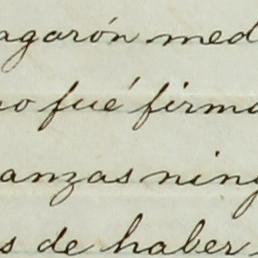 agarón med
o fué firma
anzas ning
s de haber